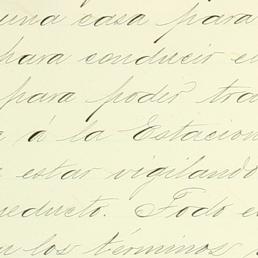 una casa para
para conducir e
para poder tra
á la Estacion
estar vigilando
educto. Todo e
los términos